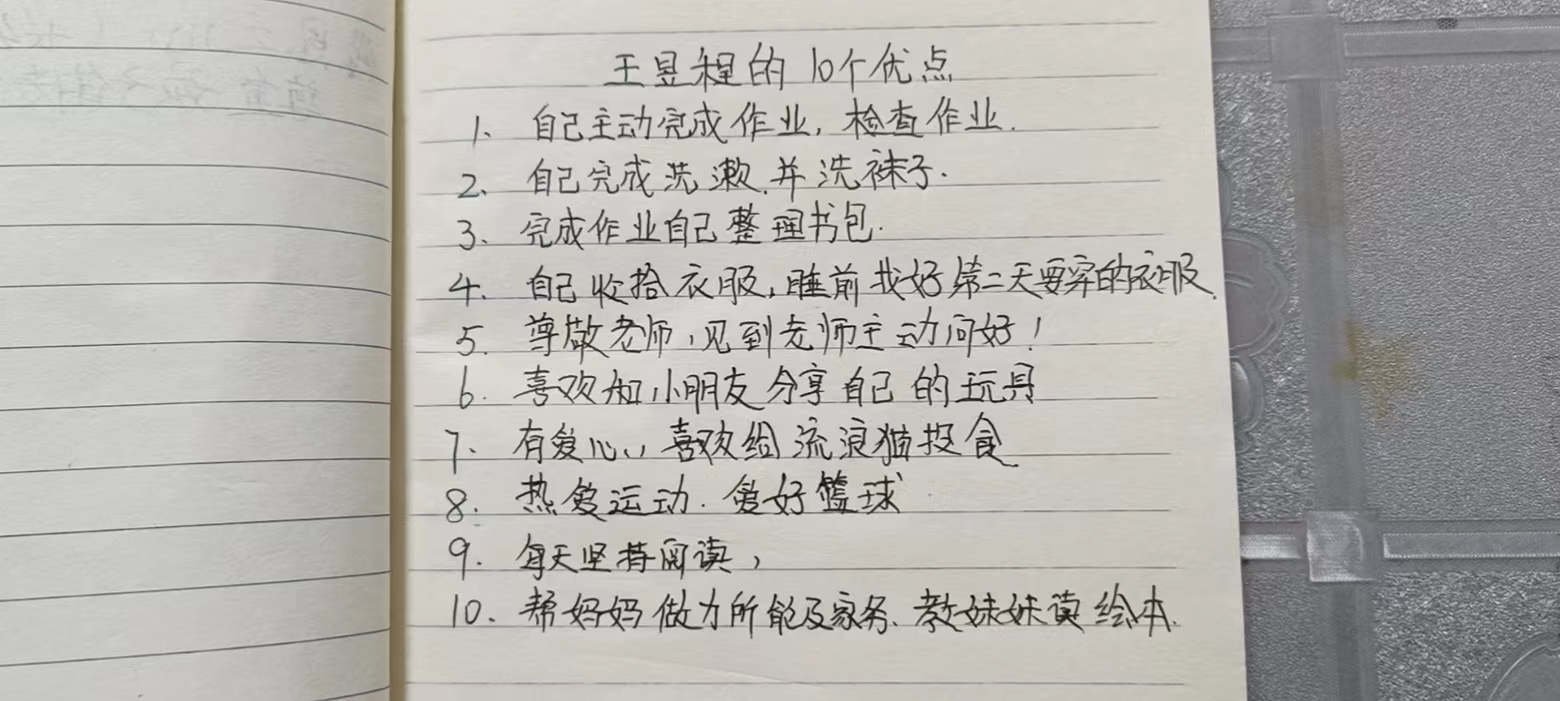 王昱程的10个优点
1、自己主动完成作业，检查作业.
2、自己完成洗漱.并洗袜子.
3、完成作业自己整理书包.
4、自己收拾衣服，睡前找好第二天要穿的衣服.
5、尊敬老师，见到老师主动问好！
6、喜欢和小朋友分享自己的玩具
7、有爱心，喜欢给流浪猫投食
8、热爱运动.爱好篮球
9、每天坚持阅读，
10、帮妈妈做力所能及家务、教妹妹读绘本.